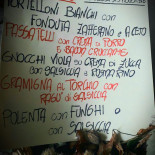 TORTELLONI BIANCHI con
FONDUTA ZAFFERANO E ACETO
PASSATELLI con CREMA di PORRO
E BACON CROCCANTE
GNOCCHI VIOLA SU CREMA di ZUCCA
con SALSICCIA E ROSMARINO
GRAMIGNA AL TORCHIO CON
RAGÙ di SALSICCIA
POLENTA con FUNGHI o
con SALSICCIA